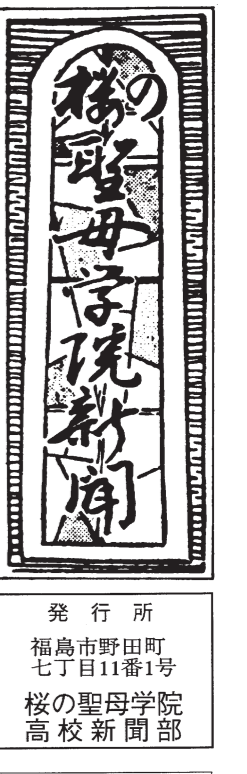 桜の聖母学院新聞
発行所
福島市野田町
七丁目11番1号
桜の聖母学院
高校新聞部